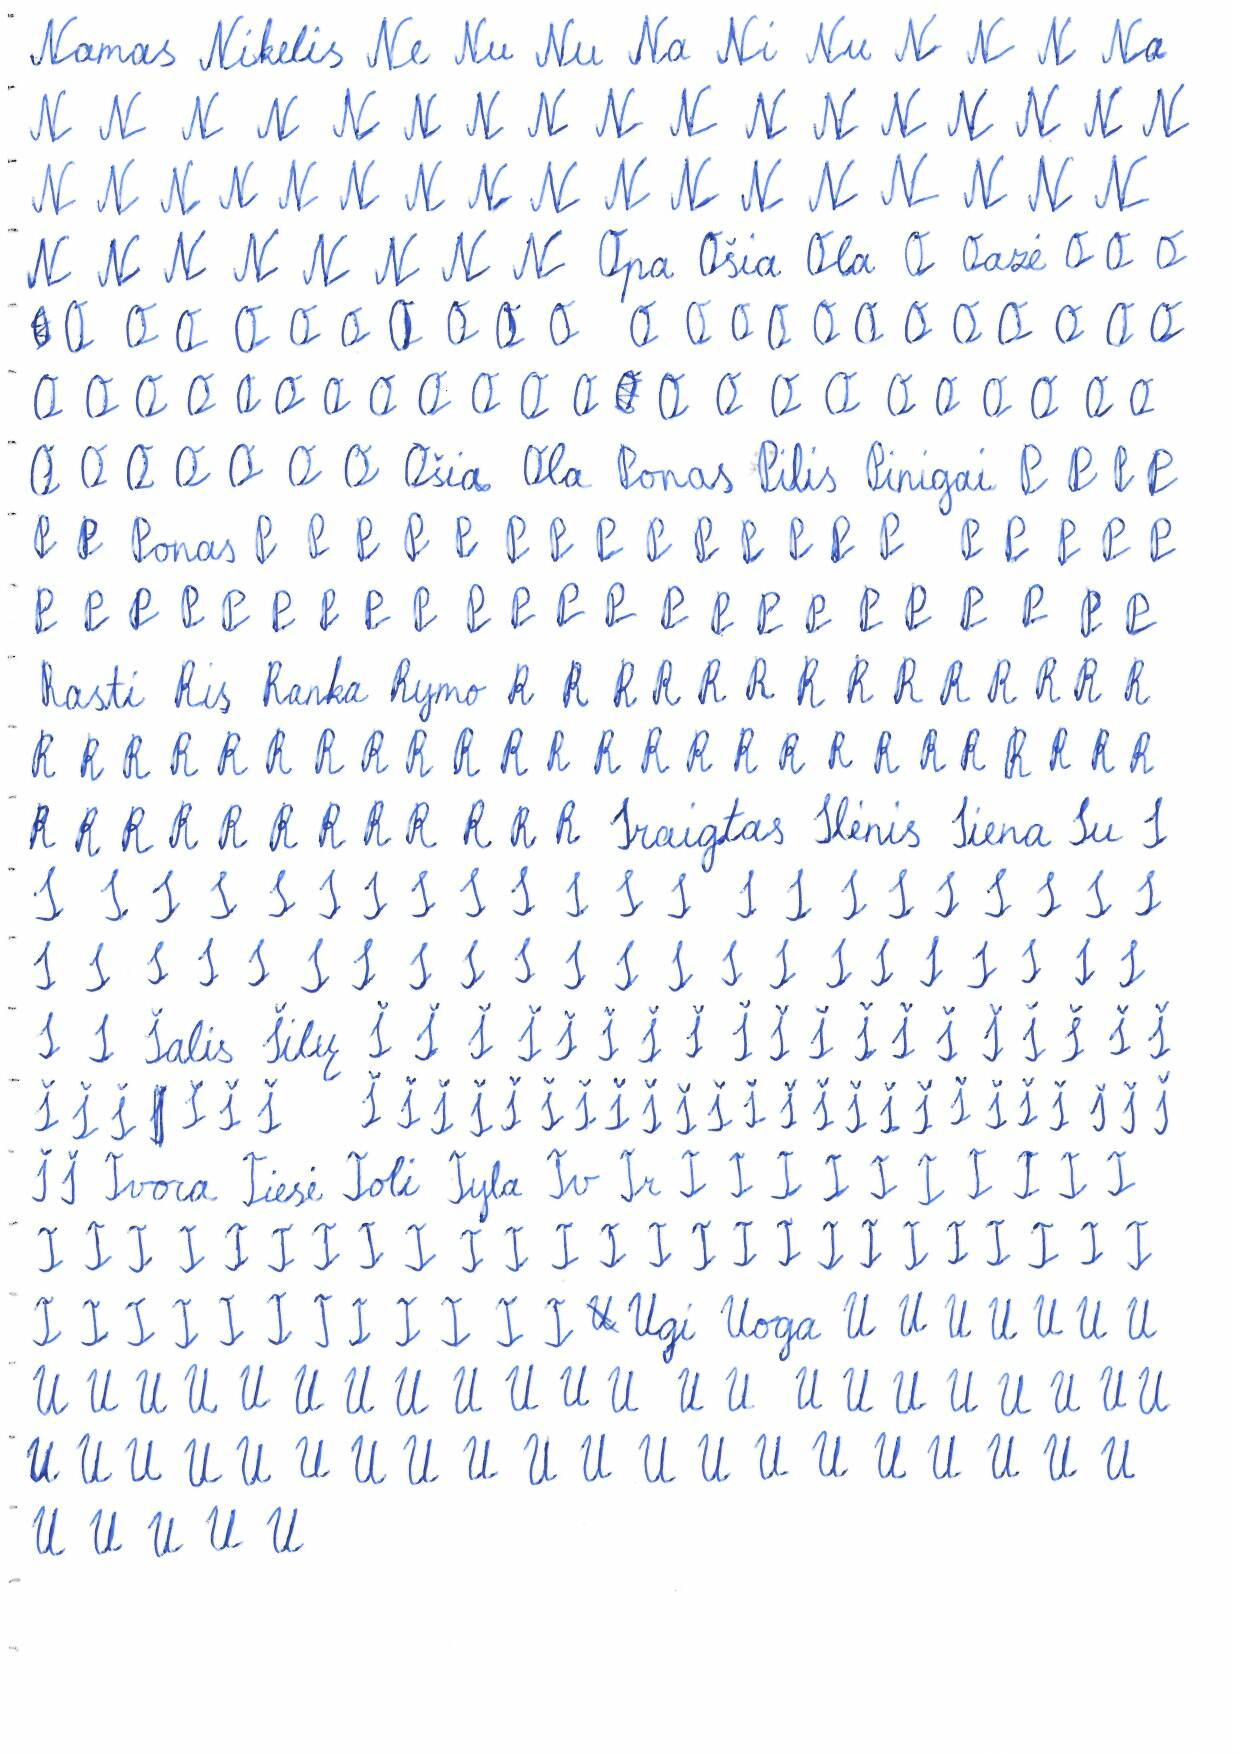 Namas Nikelis Ne Nu Nu Na Ni Nu N N N Na
N N N N N N N N N N N N N N N N N
N N N N N N N N N N N N N N N N N
N N N N N N N N Opa Ošia Ola O Oazė O O O
O O O O O O O O O O O O O O O O O O O O O O
O O O O O O O O O O O O O O O O O O O O O O
O O O O O O O Ošia Ola Ponas Pilis Pinigai P P P P
P P Ponas P P P P P P P P P P P P P P P P P P P
P P P P P P P P P P P P P P P P P P P P P P P
Rasti Ris Ranka Rymo R R R R R R R R R R R R R R
R R R R R R R R R R R R R R R R R R R R R R R R
R R R R R R R R R R R R Sraigtas Slėnis Siena Su S
S S S S S S S S S S S S S S S S S S S S S S
S S S S S S S S S S S S S S S S S S S S S S
S S Šalis Šilų Š Š Š Š Š Š Š Š Š Š Š Š Š Š Š Š Š Š Š
Š Š Š Š Š Š Š Š Š Š Š Š Š Š Š Š Š Š Š Š Š Š Š Š Š Š Š Š Š
Š Š Tvora Tiesė Toli Tyla Tv Tr T T T T T T T T T T
T T T T T T T T T T T T T T T T T T T T T T T T
T T T T T T T T T T T T Ugi Uoga U U U U U U U
U U U U U U U U U U U U U U U U U U U U U U
U U U U U U U U U U U U U U U U U U U U
U U U U U